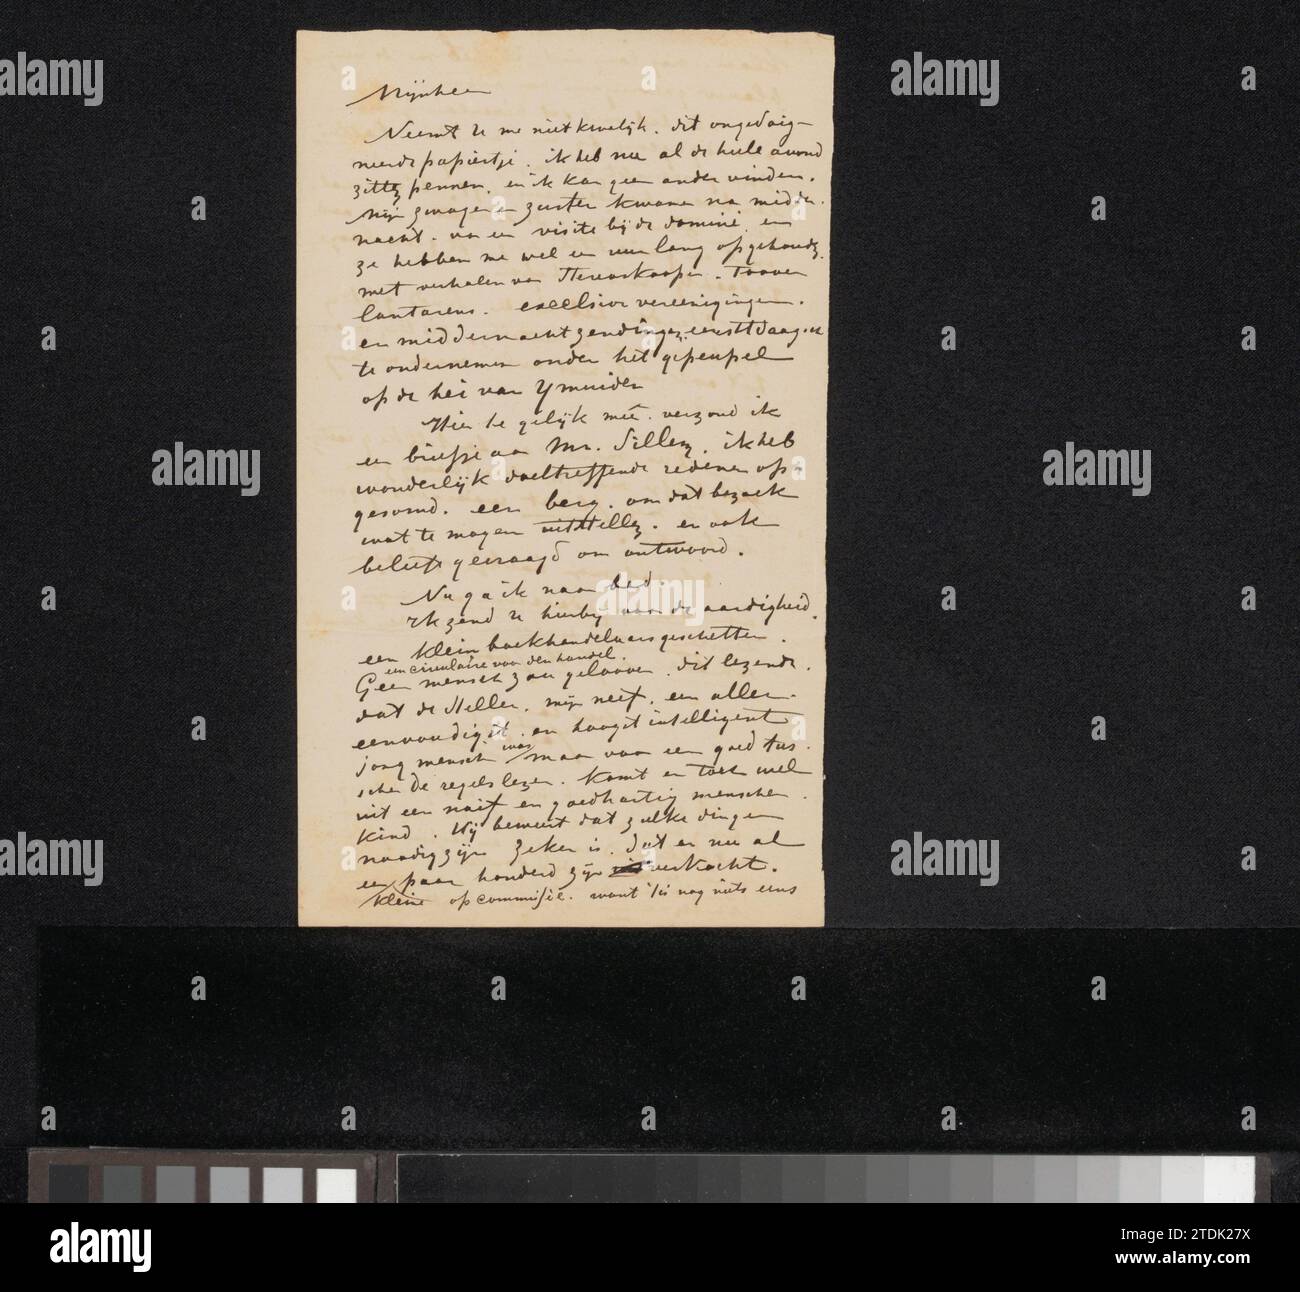 Mijnheer
Neemt U me niet kwelijk. dit ongedaig-
neerde papiertje. ik heb nu al de heele avond
zitten pennen. en ik kan geen ander vinden.
Mijn zwager en zuster kwamen na midder.
nacht. van een visite bij de dominé. en
ze hebben me wel een uur lang opgehouden.
met verhalen van Stereoskoopen. Toover
lantarens. excelsior vereenigingen.
en middernachtzendingen, eerstdaags
te ondernemen onder het gepeupel
op de hei van Ymuiden
Hier te gelijk meê. verzond ik
een briefje aan Mr. Sillem. ik heb
wonderlijk doeltreffende redenen op-
gesomd. een berg. om dat bezoek
wat te mogen uitstellen. en ook
beleefd gevraagd om antwoord.
Nu ga ik naar bed.
Ik zend U hierbij voor de aardigheid.
een klein boekhandelaarsgeschetter.
een circulaire voor den handel.
Geen mensch zou gelooven. dit lezende.
dat de steller. mijn neef. een aller-
eenvoudigst. en hoogst intelligent
jong mensch was maar voor een goed tus.
schen de regels lezer. komt er toch wel
uit een naïf en goedhartig menschen
kind. Hij beweert dat zulke dingen
noodig zijn zeker is. dat er nu al
een paar honderd zijn verkocht.
kleine op commissie. want 't is nog niets eens
alamy
2TDK27X
Image ID: 2TDK27X
www.alamy.com